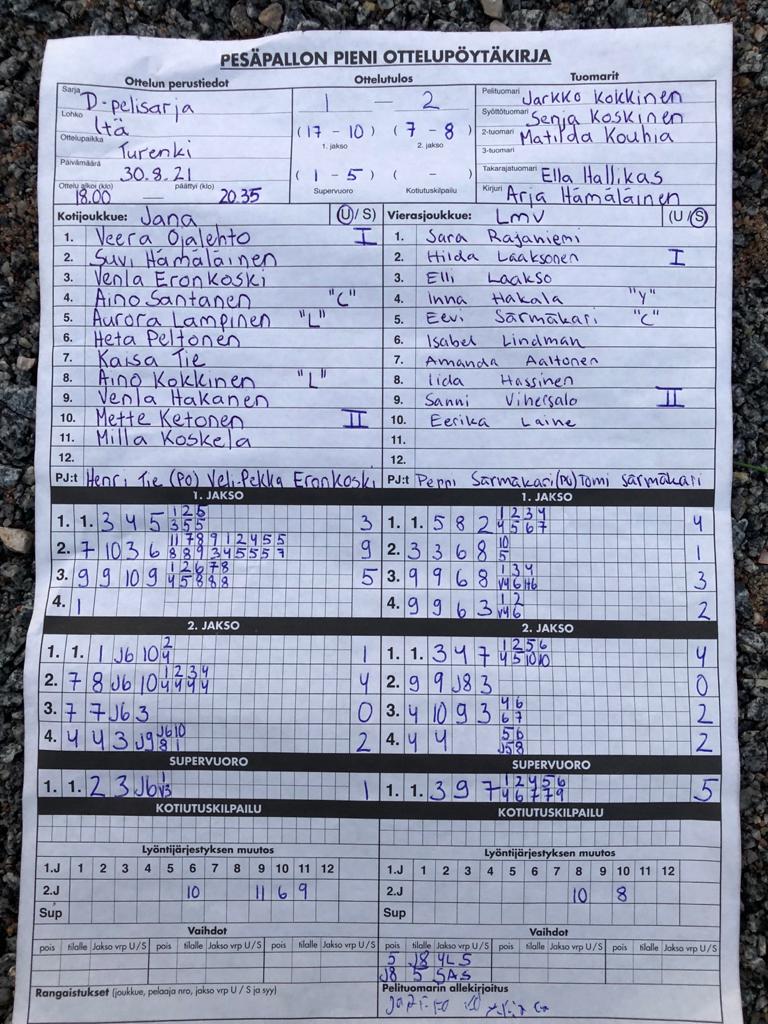 PESÄPALLON PIENI OTTELUPÖYTÄKIRJA
Ottelun perustiedot Ottelutulos Tuomarit
Sarja D-pelisarja
Lohko Itä
Ottelupaikka Turenki
Päivämäärä 30.8.21
Ottelu alkoi (klo) 18.00 — päättyi (klo) 20.35
1 — 2
(17 - 10) (7 - 8)
1. jakso 2. jakso
(1 - 5) ( - )
Supervuoro Kotiutuskilpailu
Pelituomari Jarkko Kokkinen
Syöttötuomari Senja Koskinen
2-tuomari Matilda Kouhia
3-tuomari
Takarajatuomari Ella Hallikas
Kirjuri Arja Hämäläinen
Kotijoukkue: Jana (U/S)
1. Veera Ojalehto I
2. Suvi Hämäläinen
3. Venla Eronkoski
4. Aino Santanen "C"
5. Aurora Lampinen "L"
6. Heta Peltonen
7. Kaisa Tie
8. Aino Kokkinen "L"
9. Venla Hakanen
10. Mette Ketonen II
11. Milla Koskela
12.
PJ:t Henri Tie (PO) Veli-Pekka Eronkoski
Vierasjoukkue: LMV (U/S)
1. Sara Rajaniemi
2. Hilda Laaksonen I
3. Elli Laakso
4. Inna Hakala "Y"
5. Eevi Särmäkari "C"
6. Isabel Lindman
7. Amanda Aaltonen
8. Iida Hassinen
9. Sanni Vihersalo II
10. Eerika Laine
11.
12.
PJ:t Peppi Särmäkari (PO) Tomi Särmäkari
1. JAKSO
1. 1. 3 4 5 1 2 5 3
3 5 5
2. 7 10 3 6 11 7 8 9 1 2 4 5 5 9
8 8 9 3 4 5 5 5 7
3. 9 9 10 9 1 2 6 7 8 5
4 5 8 8 8
4. 1
1. JAKSO
1. 1. 5 8 2 1 2 3 4 4
4 5 6 7
2. 3 3 6 8 10 1
5
3. 9 9 6 8 1 3 4 3
V4 6 H6
4. 9 9 6 3 1 2 2
V4 6
2. JAKSO
1. 1. 1 J6 10 2 1
4
2. 7 8 J6 10 1 2 3 4 4
4 4 4 4
3. 7 7 J6 3 0
4. 4 4 3 J9 J6 10 2
8 1
2. JAKSO
1. 1. 3 4 7 1 2 5 6 4
4 5 10 10
2. 9 9 J8 3 0
3. 4 10 9 3 4 6 2
6 7
4. 4 4 5 6 2
J5 8
SUPERVUORO
1. 1. 2 3 J6 1 1
V3
SUPERVUORO
1. 1. 3 9 7 1 2 4 5 6 5
4 6 7 7 9
KOTIUTUSKILPAILU
KOTIUTUSKILPAILU
Lyöntijärjestyksen muutos
1.J 1 2 3 4 5 6 7 8 9 10 11 12
2.J 10 11 6 9
Sup
Lyöntijärjestyksen muutos
1.J 1 2 3 4 5 6 7 8 9 10 11 12
2.J 10 8
Sup
Vaihdot
pois tilalle Jakso vrp U/S pois tilalle Jakso vrp U/S pois tilalle Jakso vrp U/S
Vaihdot
pois tilalle Jakso vrp U/S pois tilalle Jakso vrp U/S pois tilalle Jakso vrp U/S
5 J8 4LS
J8 5 SAS
Rangaistukset (joukkue, pelaaja nro, jakso vrp U / S ja syy)
Pelituomarin allekirjoitus